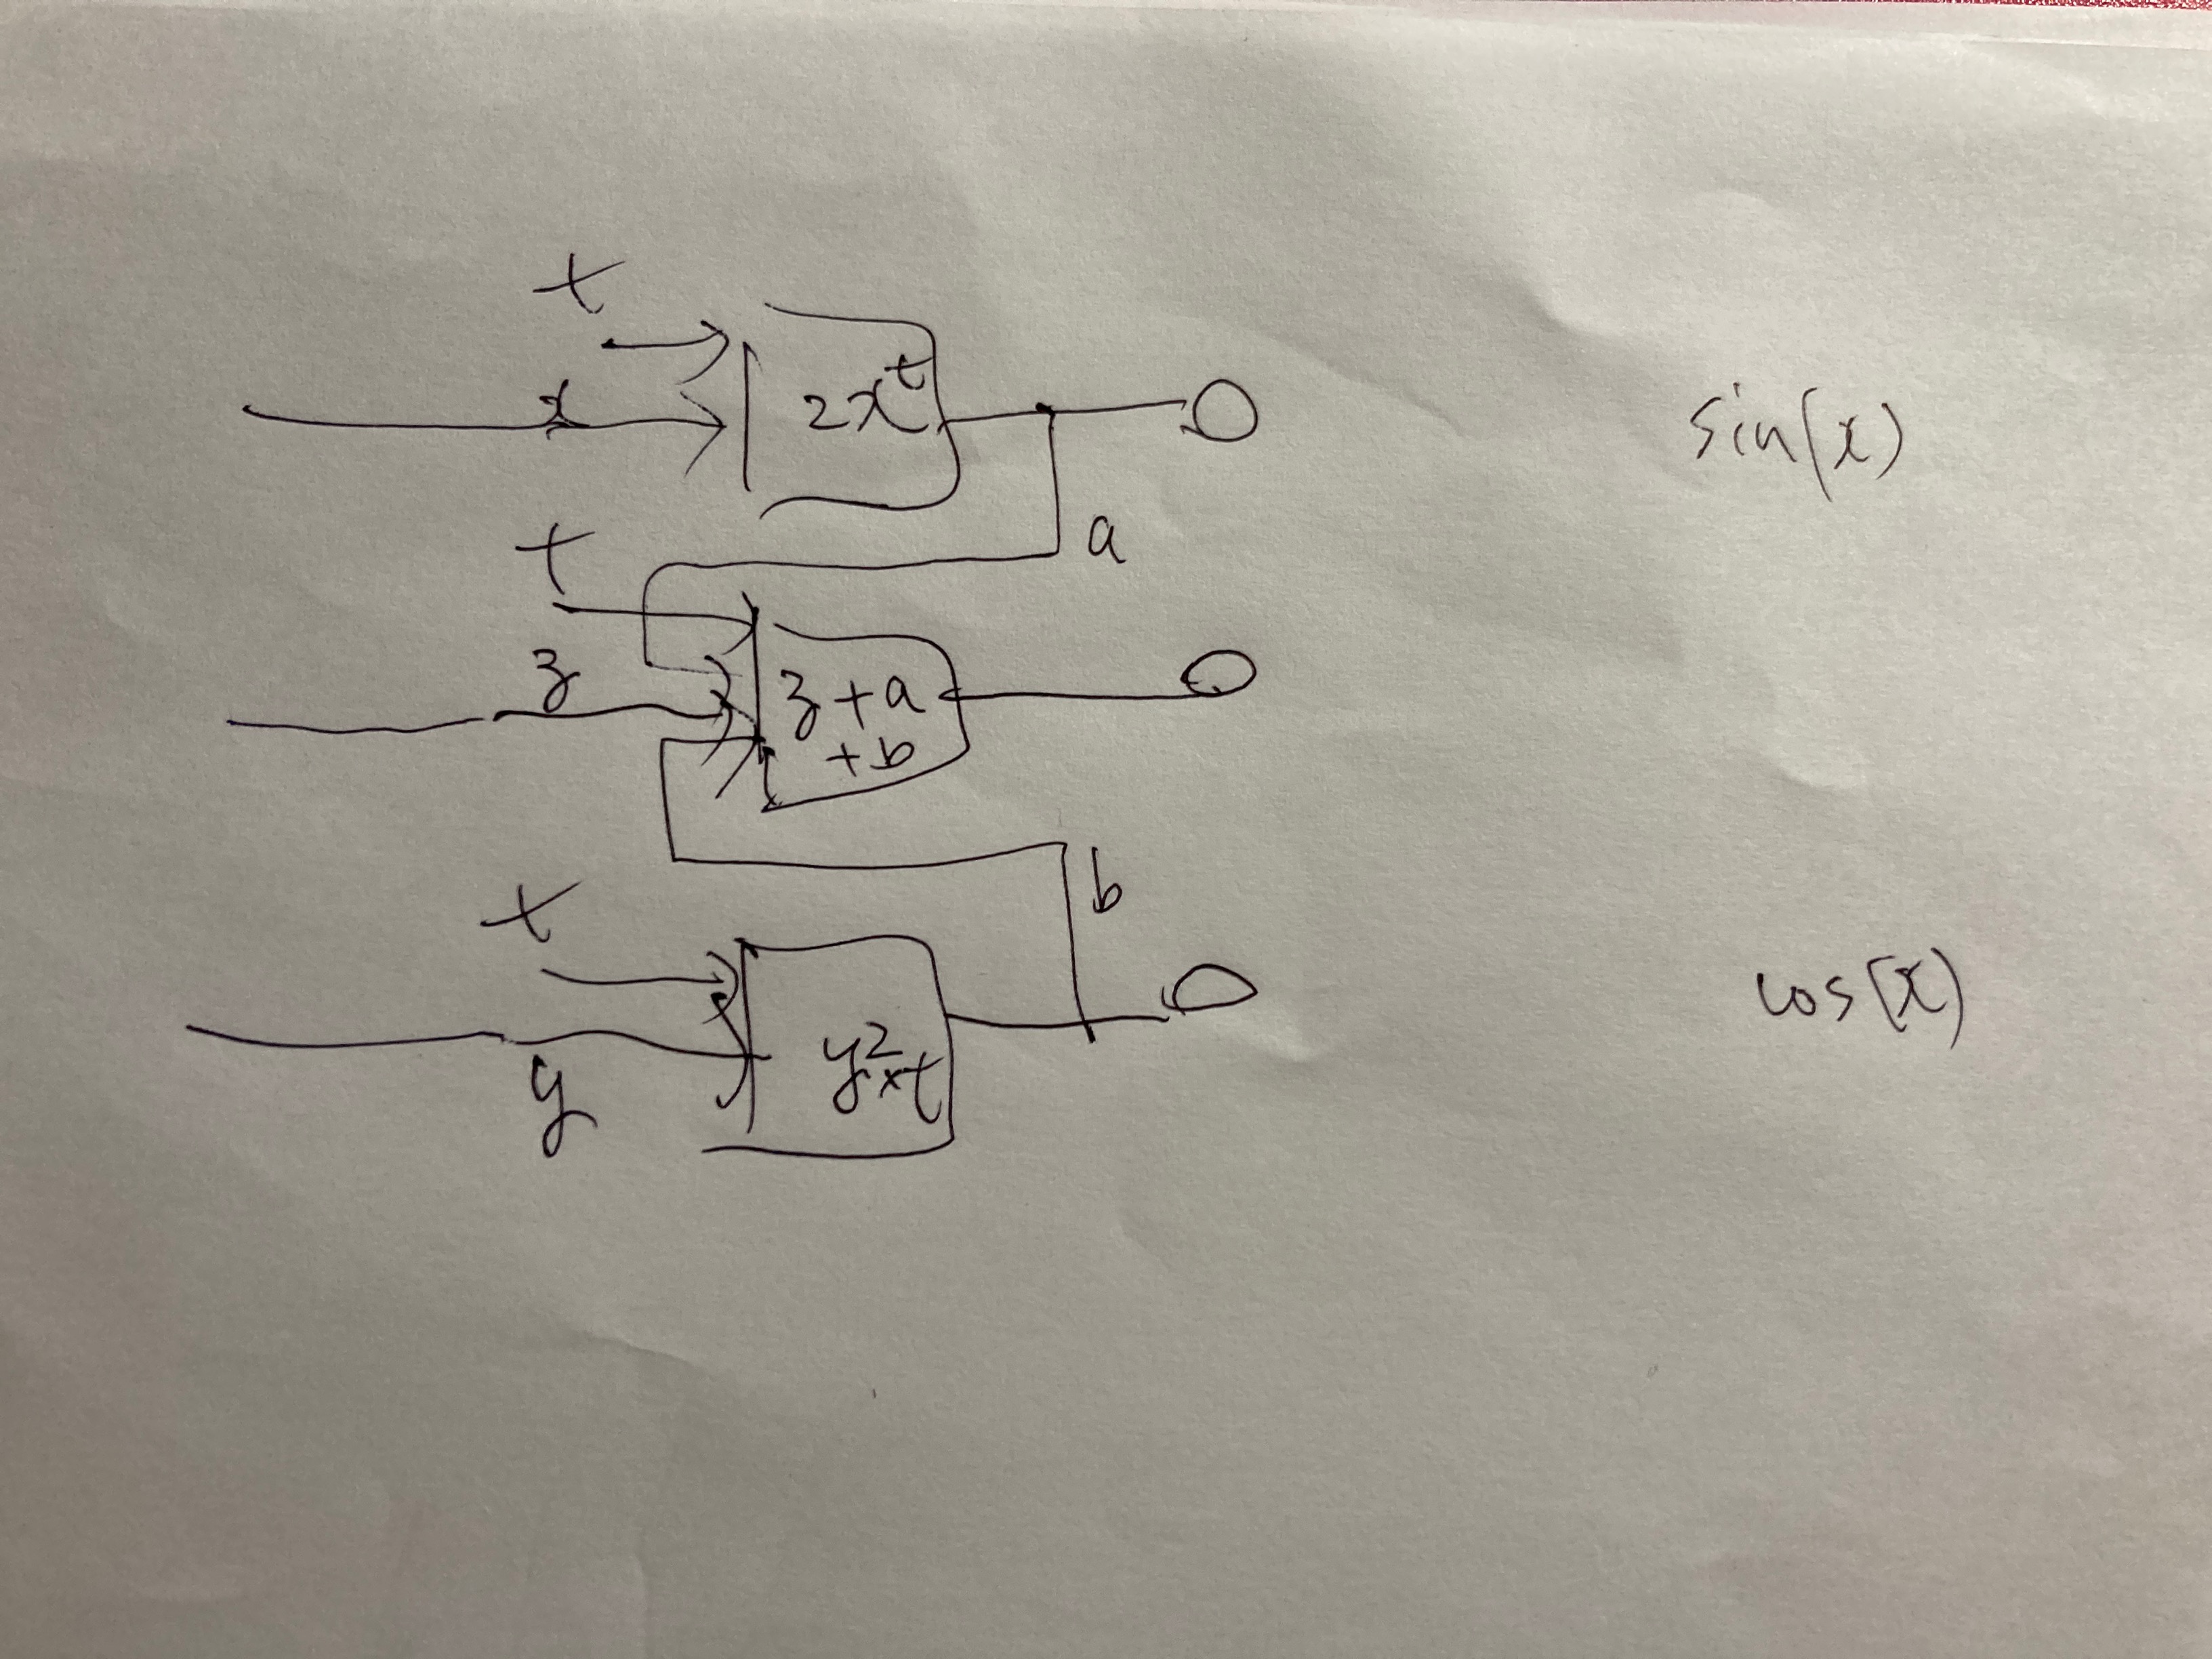 t
x
2x^t
sin(x)
a
t
z
z+a
+b
b
t
y
y²×t
cos(x)